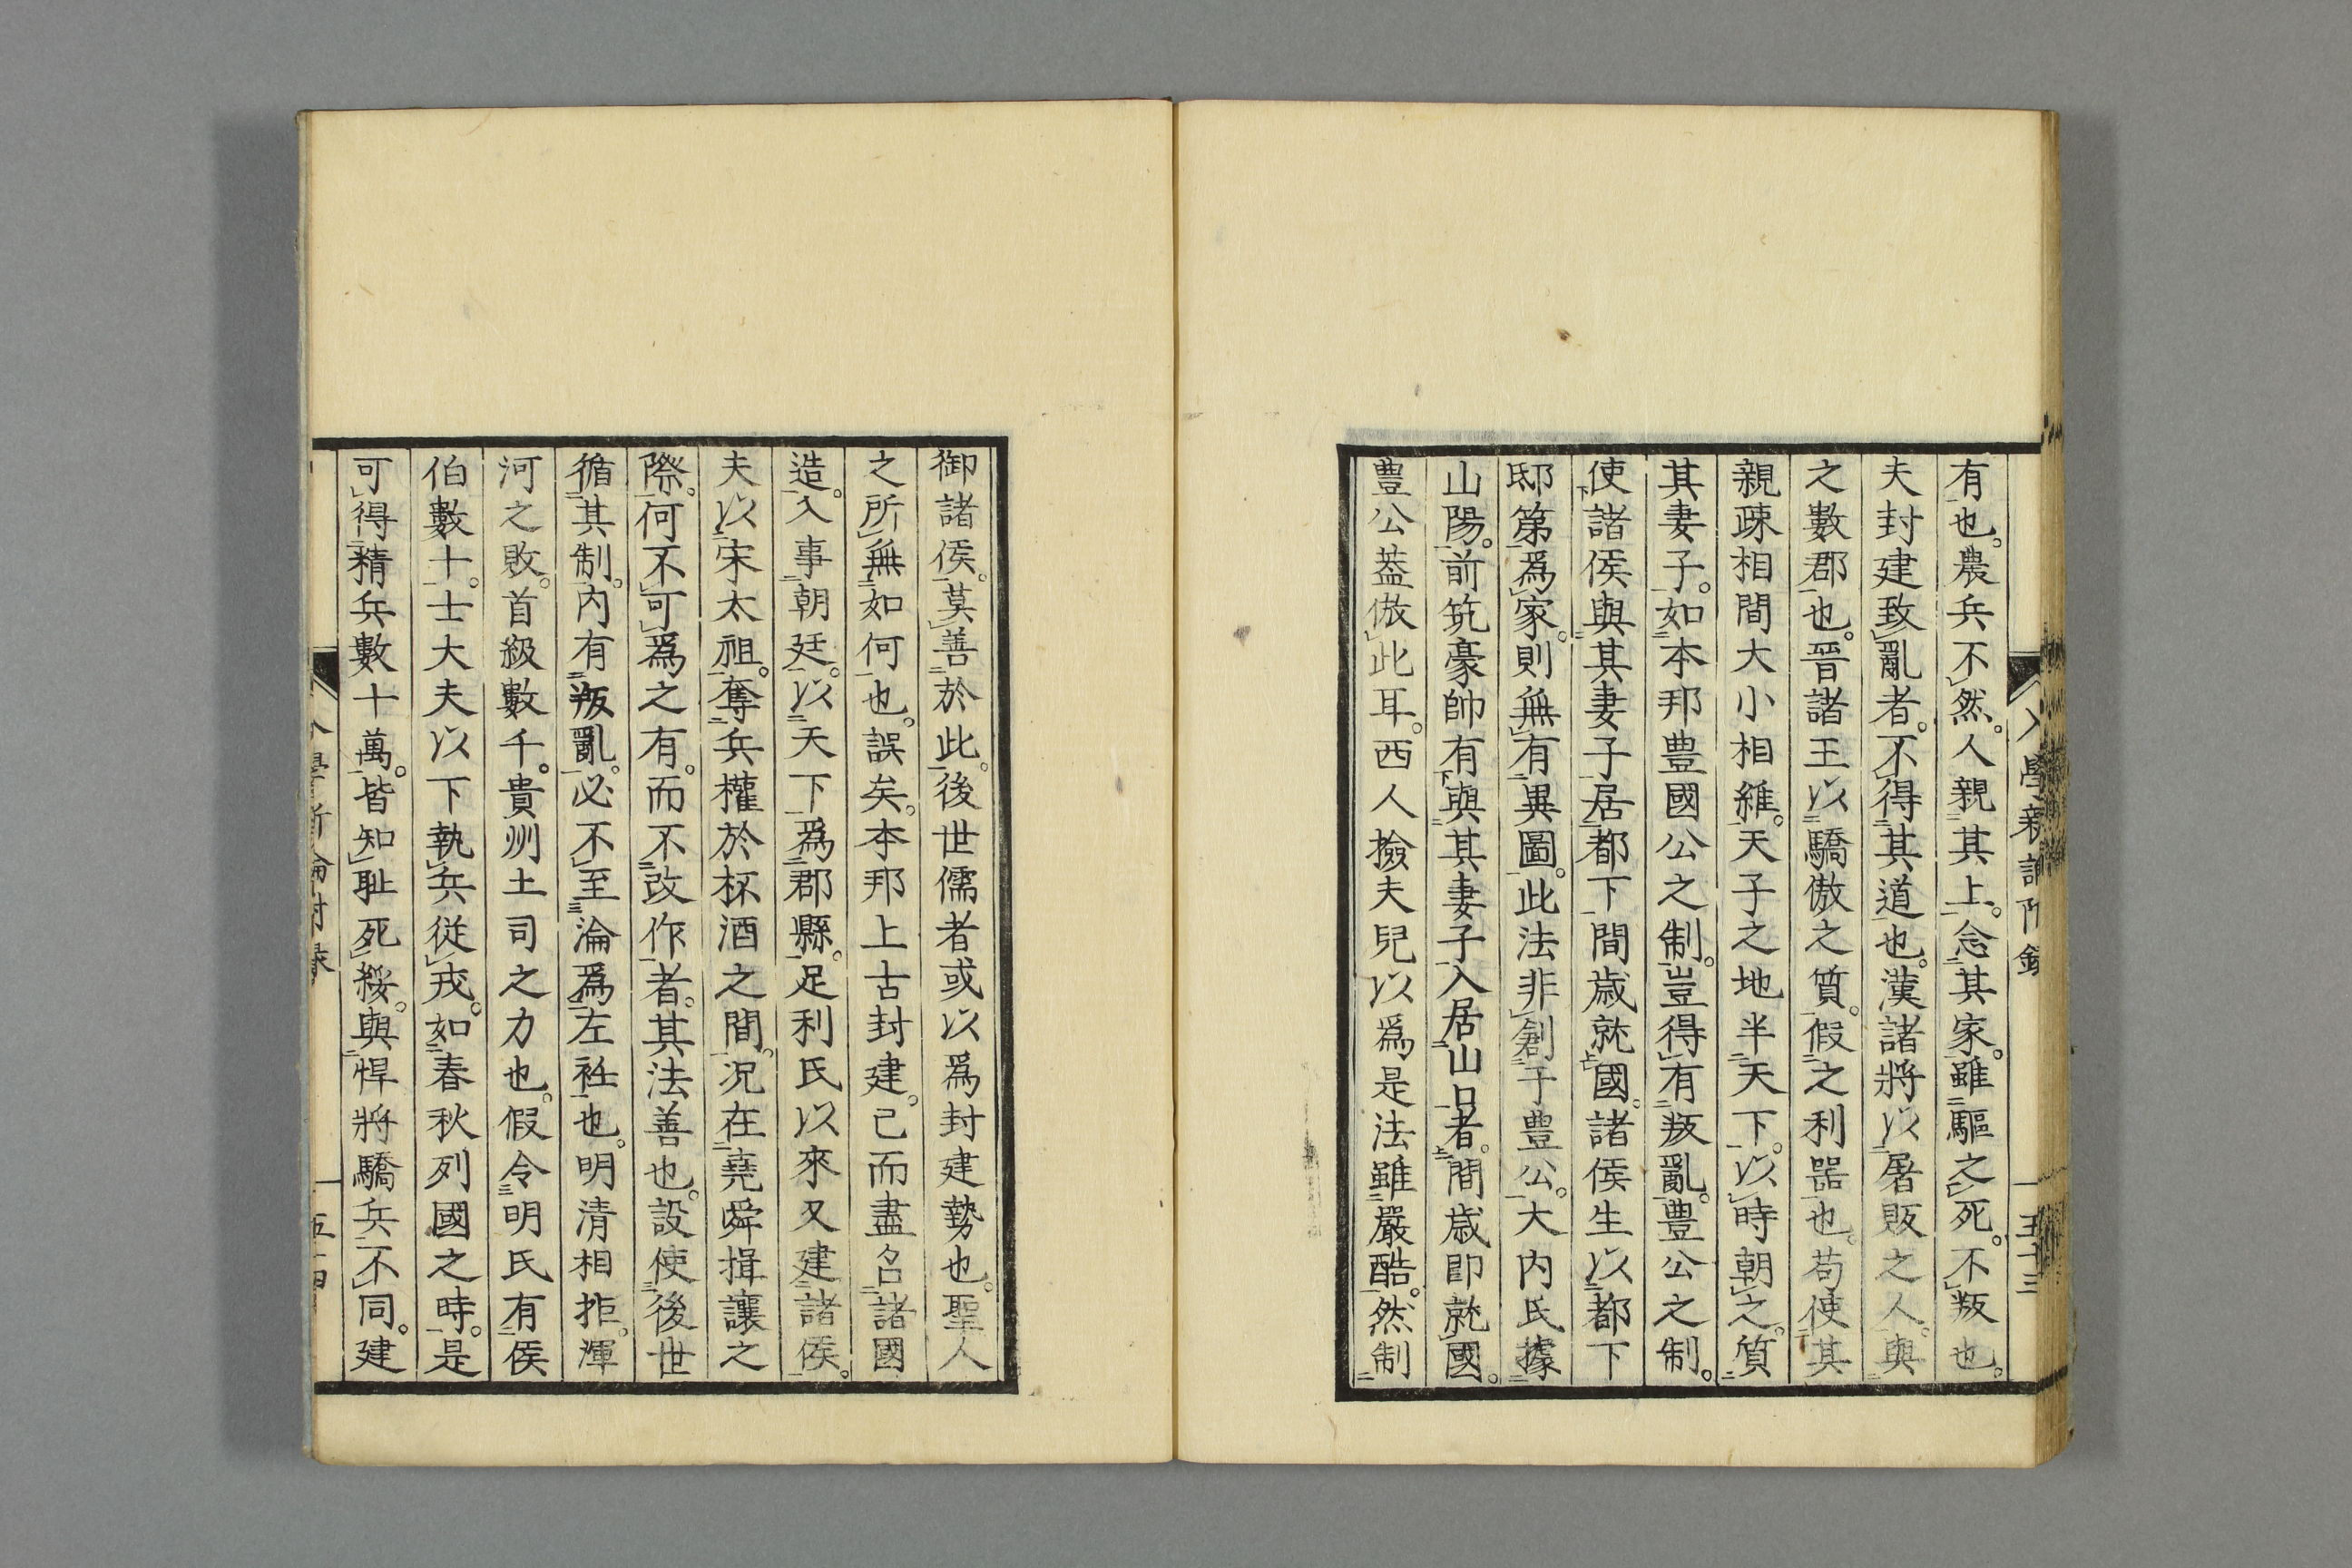 有也。農兵不然。人親其上。念其家。雖驅之死。不叛也。
夫封建致亂者。不得其道也。漢諸將以屠販之人。與
之數郡也。晉諸王以驕傲之質。假之利器也。苟使其
親疎相間大小相維。天子之地半天下。以時朝之。質
其妻子。如本邦豊國公之制。豈得有叛亂。豊公之制。
使諸侯與其妻子居都下間歲就國。諸侯生以都下
邸第爲家。則無有異圖。此法非創于豊公。大内氏據
山陽。前筑豪帥有與其妻子入居山口者。間歲卽就國。
豊公葢倣此耳。西人撿夫兒以爲是法雖嚴酷。然制
御諸侯。莫善於此。後世儒者或以爲封建勢也。聖人
之所無如何也。誤矣。本邦上古封建。已而盡名諸國
造。入事朝廷。以天下爲郡縣。足利氏以來又建諸侯。
夫以宋太祖。奪兵權於杯酒之間。况在堯舜揖讓之
際。何不可爲之有。而不改作者。其法善也。設使後世
循其制。内有叛亂。必不至淪爲左衽也。明清相拒。渾
河之敗。首級數千。貴州土司之力也。假令明氏有侯
伯數十。士大夫以下執兵從戎。如春秋列國之時。是
可得精兵數十萬。皆知耻死綏。與悍將驕兵不同。建